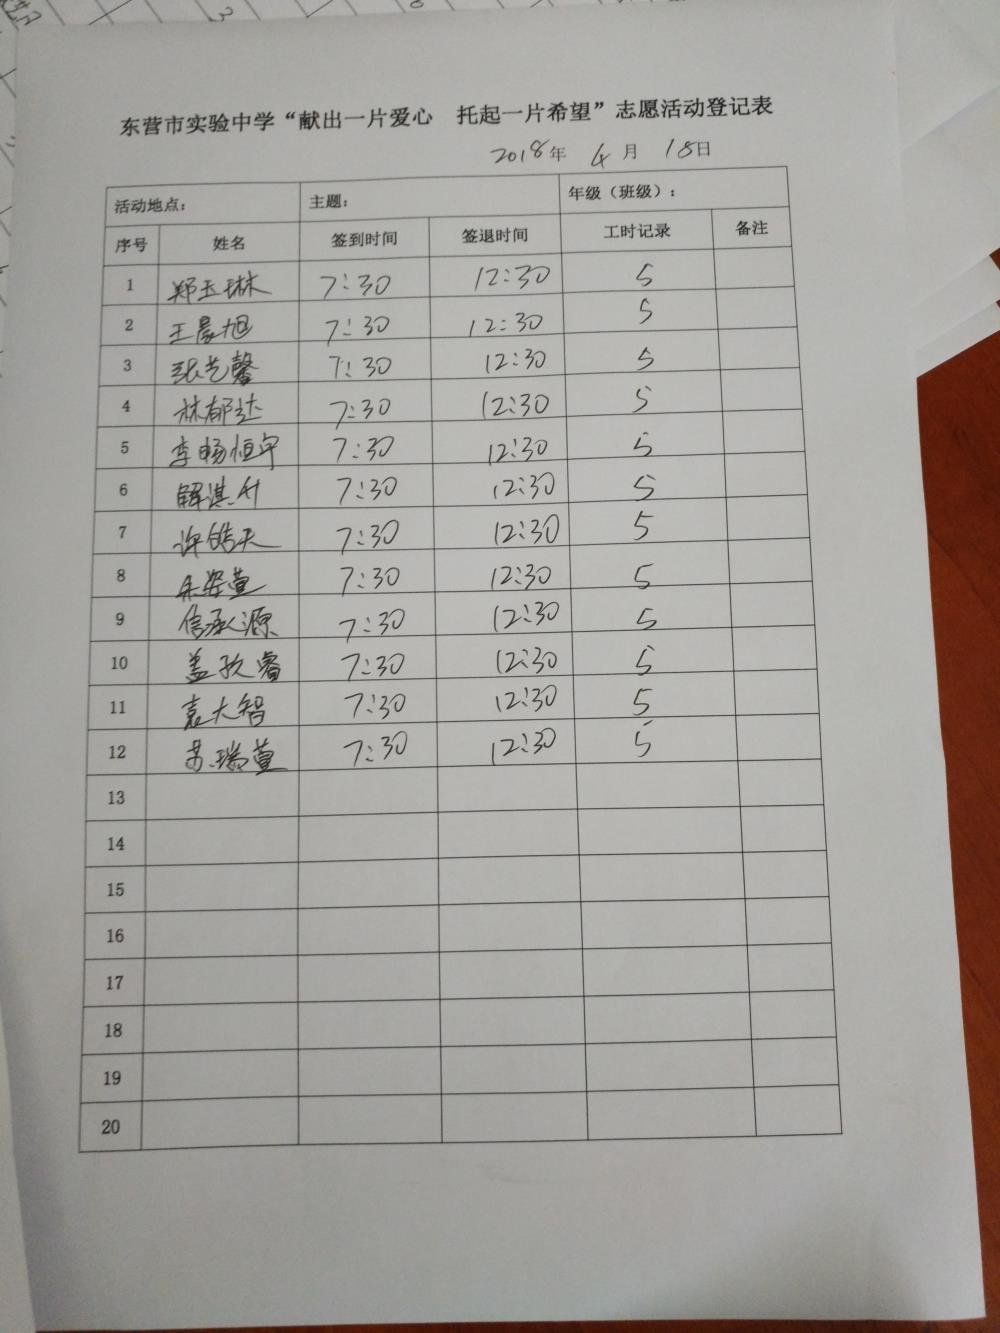 东营市实验中学“献出一片爱心 托起一片希望”志愿活动登记表
2018年 4月 18日
活动地点： 主题： 年级（班级）：
序号 姓名 签到时间 签退时间 工时记录 备注
1 郑玉琳 7:30 12:30 5
2 王晨旭 7:30 12:30 5
3 张艺馨 7:30 12:30 5
4 林郁达 7:30 12:30 5
5 李畅恒宇 7:30 12:30 5
6 解淇升 7:30 12:30 5
7 许皓天 7:30 12:30 5
8 朱姿萱 7:30 12:30 5
9 信承源 7:30 12:30 5
10 盖玖睿 7:30 12:30 5
11 袁大智 7:30 12:30 5
12 苏瑞萱 7:30 12:30 5
13
14
15
16
17
18
19
20